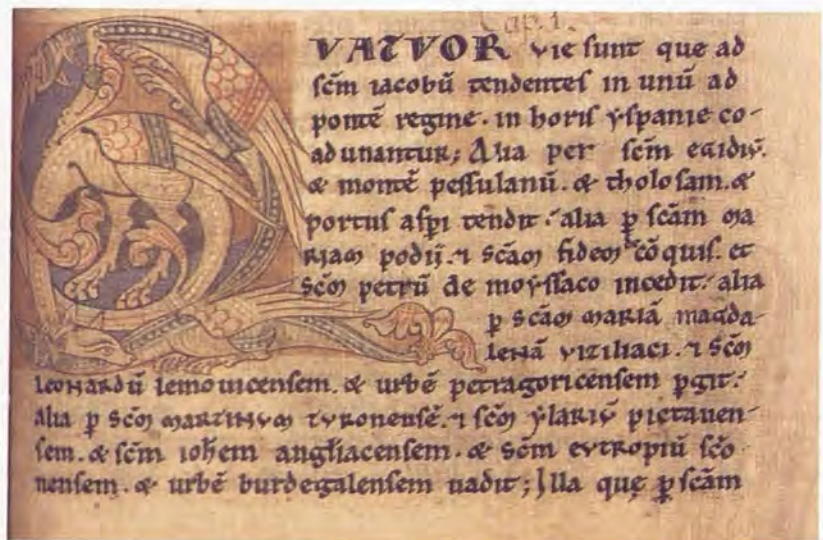 Cap. 1.
QVATVOR vie sunt que ad
scm iacobū tendentes in unū ad
pontē regine. in horis yspanie co-
adunantur; Alia per scm egidiū.
& montē pessulanū. & tholosam. &
portus aspi tendit. alia p scam ma
riam podii. ⁊ scam fidem cōquis. et
scm petrū de moyssaco incedit. alia
p scam mariā magda-
lenā viziliaci. ⁊ scm
leonardū lemouicensem. & urbē petragoricensem pgit.
alia p scm martinum turonensē. ⁊ scm ylariū pictauen-
sem. & scm iohem angliacensem. & scm eutropiū scō
nensem. & urbē burdegalensem uadit; Illa que p scam